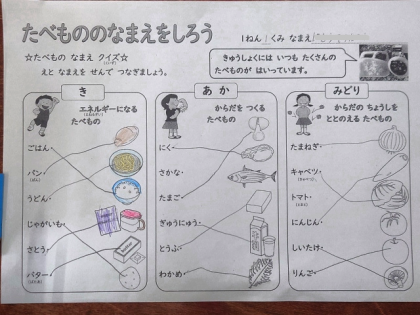 たべもののなまえをしろう
1ねん 1くみ なまえ
☆たべもの なまえ クイズ☆
えと なまえを せんで つなぎましょう。
きゅうしょくには いつも たくさんの
たべものが はいっています。
き
エネルギーになる
たべもの
ごはん
パン
うどん
じゃがいも
さとう
バター
あか
からだを つくる
たべもの
にく
さかな
たまご
ぎゅうにゅう
とうふ
わかめ
みどり
からだの ちょうしを
ととのえる たべもの
たまねぎ
キャベツ
トマト
にんじん
しいたけ
りんご